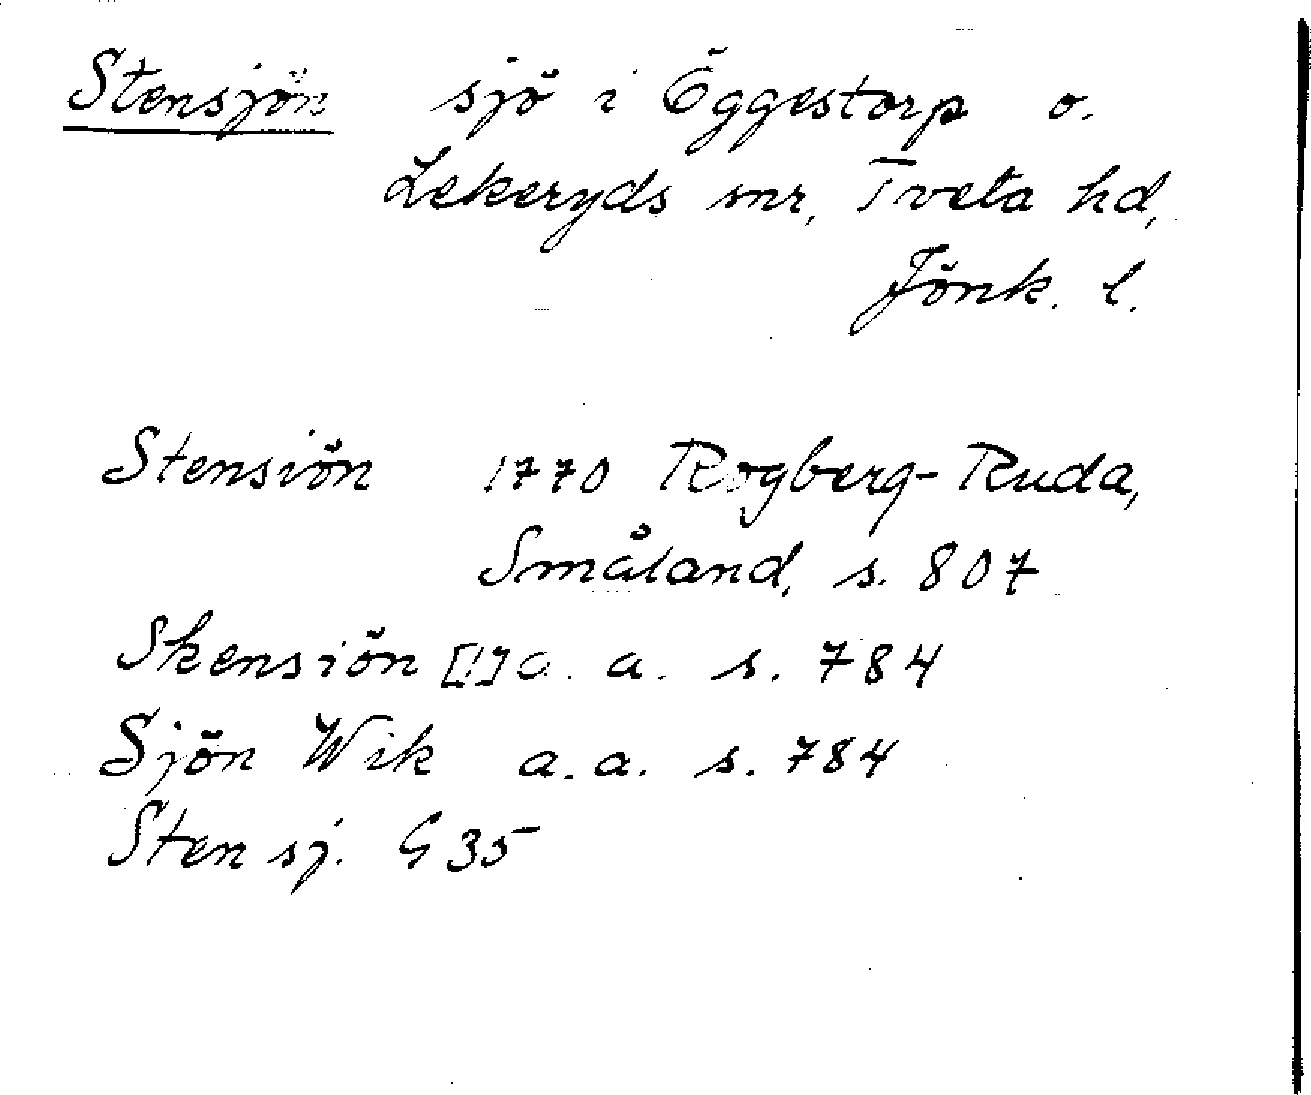 Stensjön sjö i Öggestorp o.
Lekeryds snr, Tveta hd,
Jönk. l.
Stensiön 1770 Rogberg-Ruda,
Småland, s. 807
Skensiön [!] a. a. s. 784
Sjön Wik a. a. s. 784
Sten sj. G 35